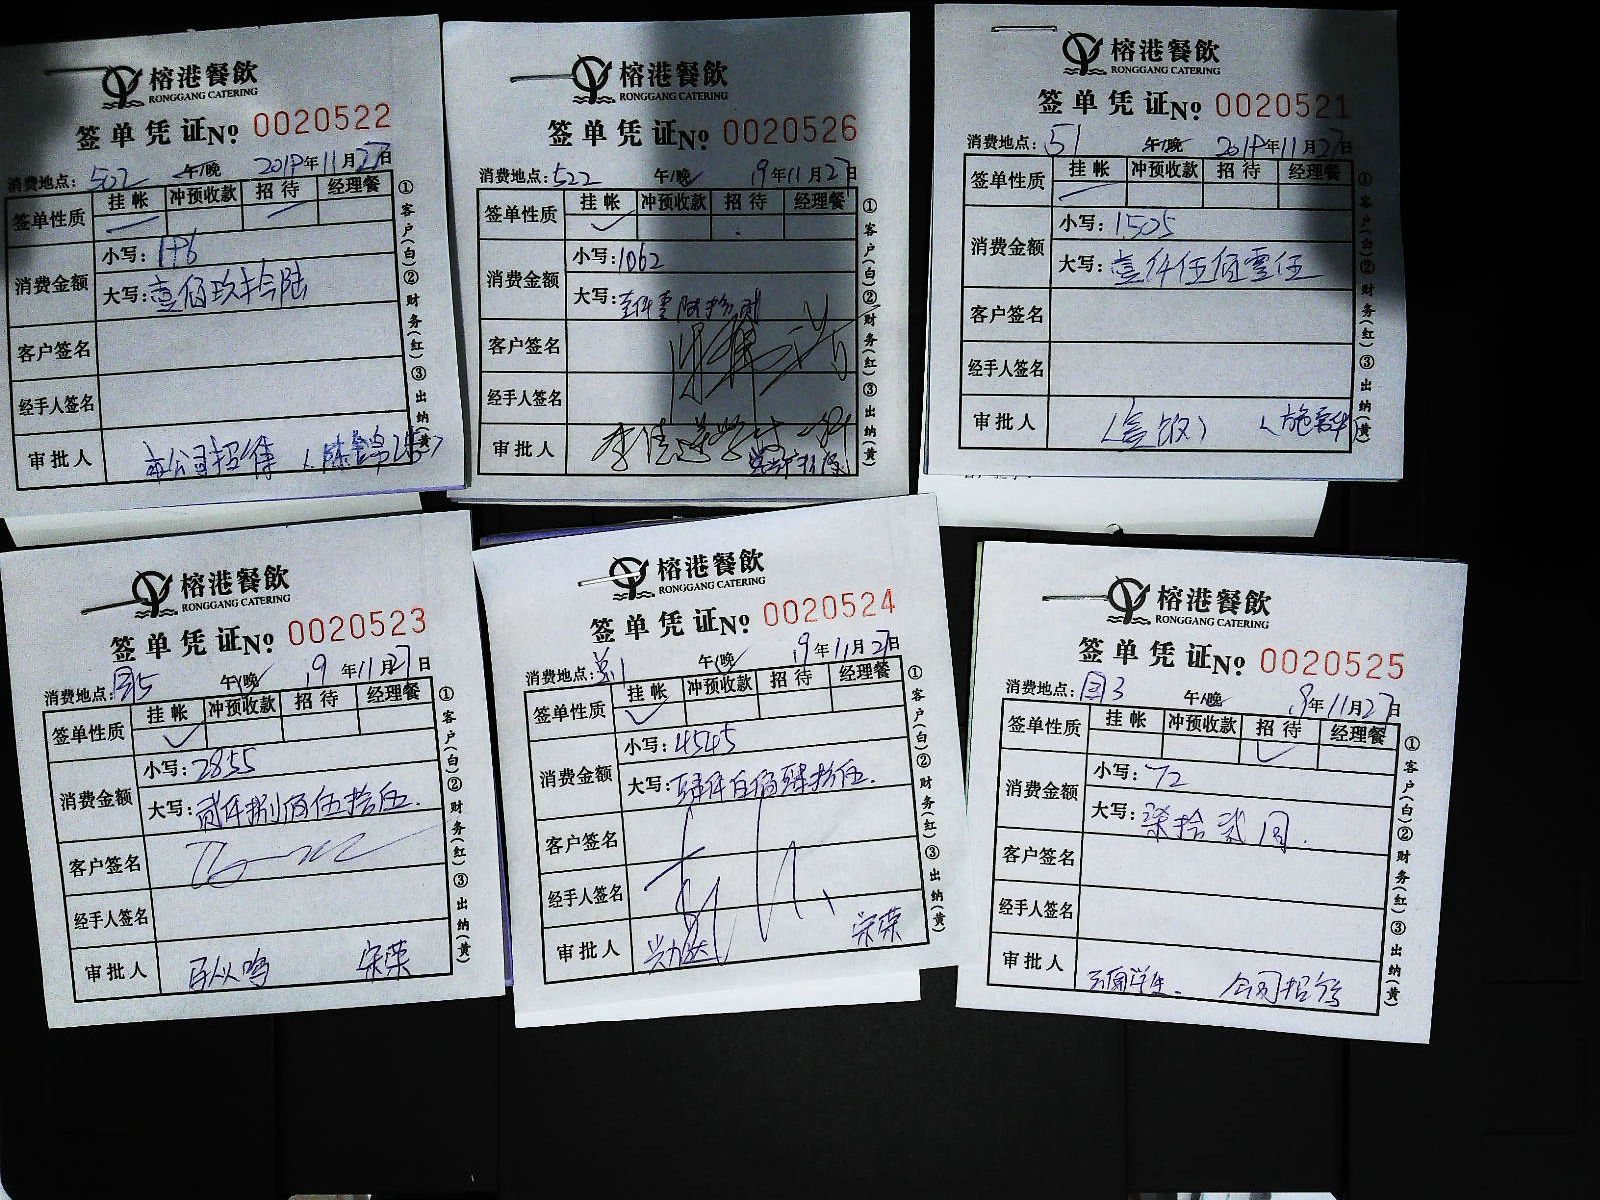 榕港餐飲
RONGGANG CATERING
签单凭证No 0020522
消费地点:502 午/晚 2019年11月27日
签单性质 挂帐 冲预收款 招待 经理餐
消费金额 小写:196
大写:壹佰玖拾陆
客户签名
经手人签名
审批人 公司招待
①客户(白)②财务(红)③出纳(黄)
榕港餐飲
RONGGANG CATERING
签单凭证No 0020526
消费地点:522 午/晚 19年11月27日
签单性质 挂帐 冲预收款 招待 经理餐
消费金额 小写:1062
大写:壹仟零陆拾贰
客户签名
经手人签名
审批人
①客户(白)②财务(红)③出纳(黄)
榕港餐飲
RONGGANG CATERING
签单凭证No 0020521
消费地点:51 午/晚 2019年11月27日
签单性质 挂帐 冲预收款 招待 经理餐
消费金额 小写:1505
大写:壹仟伍佰零伍
客户签名
经手人签名
审批人
①客户(白)②财务(红)③出纳(黄)
榕港餐飲
RONGGANG CATERING
签单凭证No 0020523
消费地点:园5 午/晚 19年11月27日
签单性质 挂帐 冲预收款 招待 经理餐
消费金额 小写:2855
大写:贰仟捌佰伍拾伍.
客户签名
经手人签名
审批人 宋荣
①客户(白)②财务(红)③出纳(黄)
榕港餐飲
RONGGANG CATERING
签单凭证No 0020524
消费地点:总1 午/晚 19年11月27日
签单性质 挂帐 冲预收款 招待 经理餐
消费金额 小写:4545
大写:肆仟伍佰肆拾伍.
客户签名
经手人签名
审批人 宋荣
①客户(白)②财务(红)③出纳(黄)
榕港餐飲
RONGGANG CATERING
签单凭证No 0020525
消费地点:园3 午/晚 19年11月27日
签单性质 挂帐 冲预收款 招待 经理餐
消费金额 小写:72
大写:柒拾贰圆.
客户签名
经手人签名
审批人 公司招待
①客户(白)②财务(红)③出纳(黄)